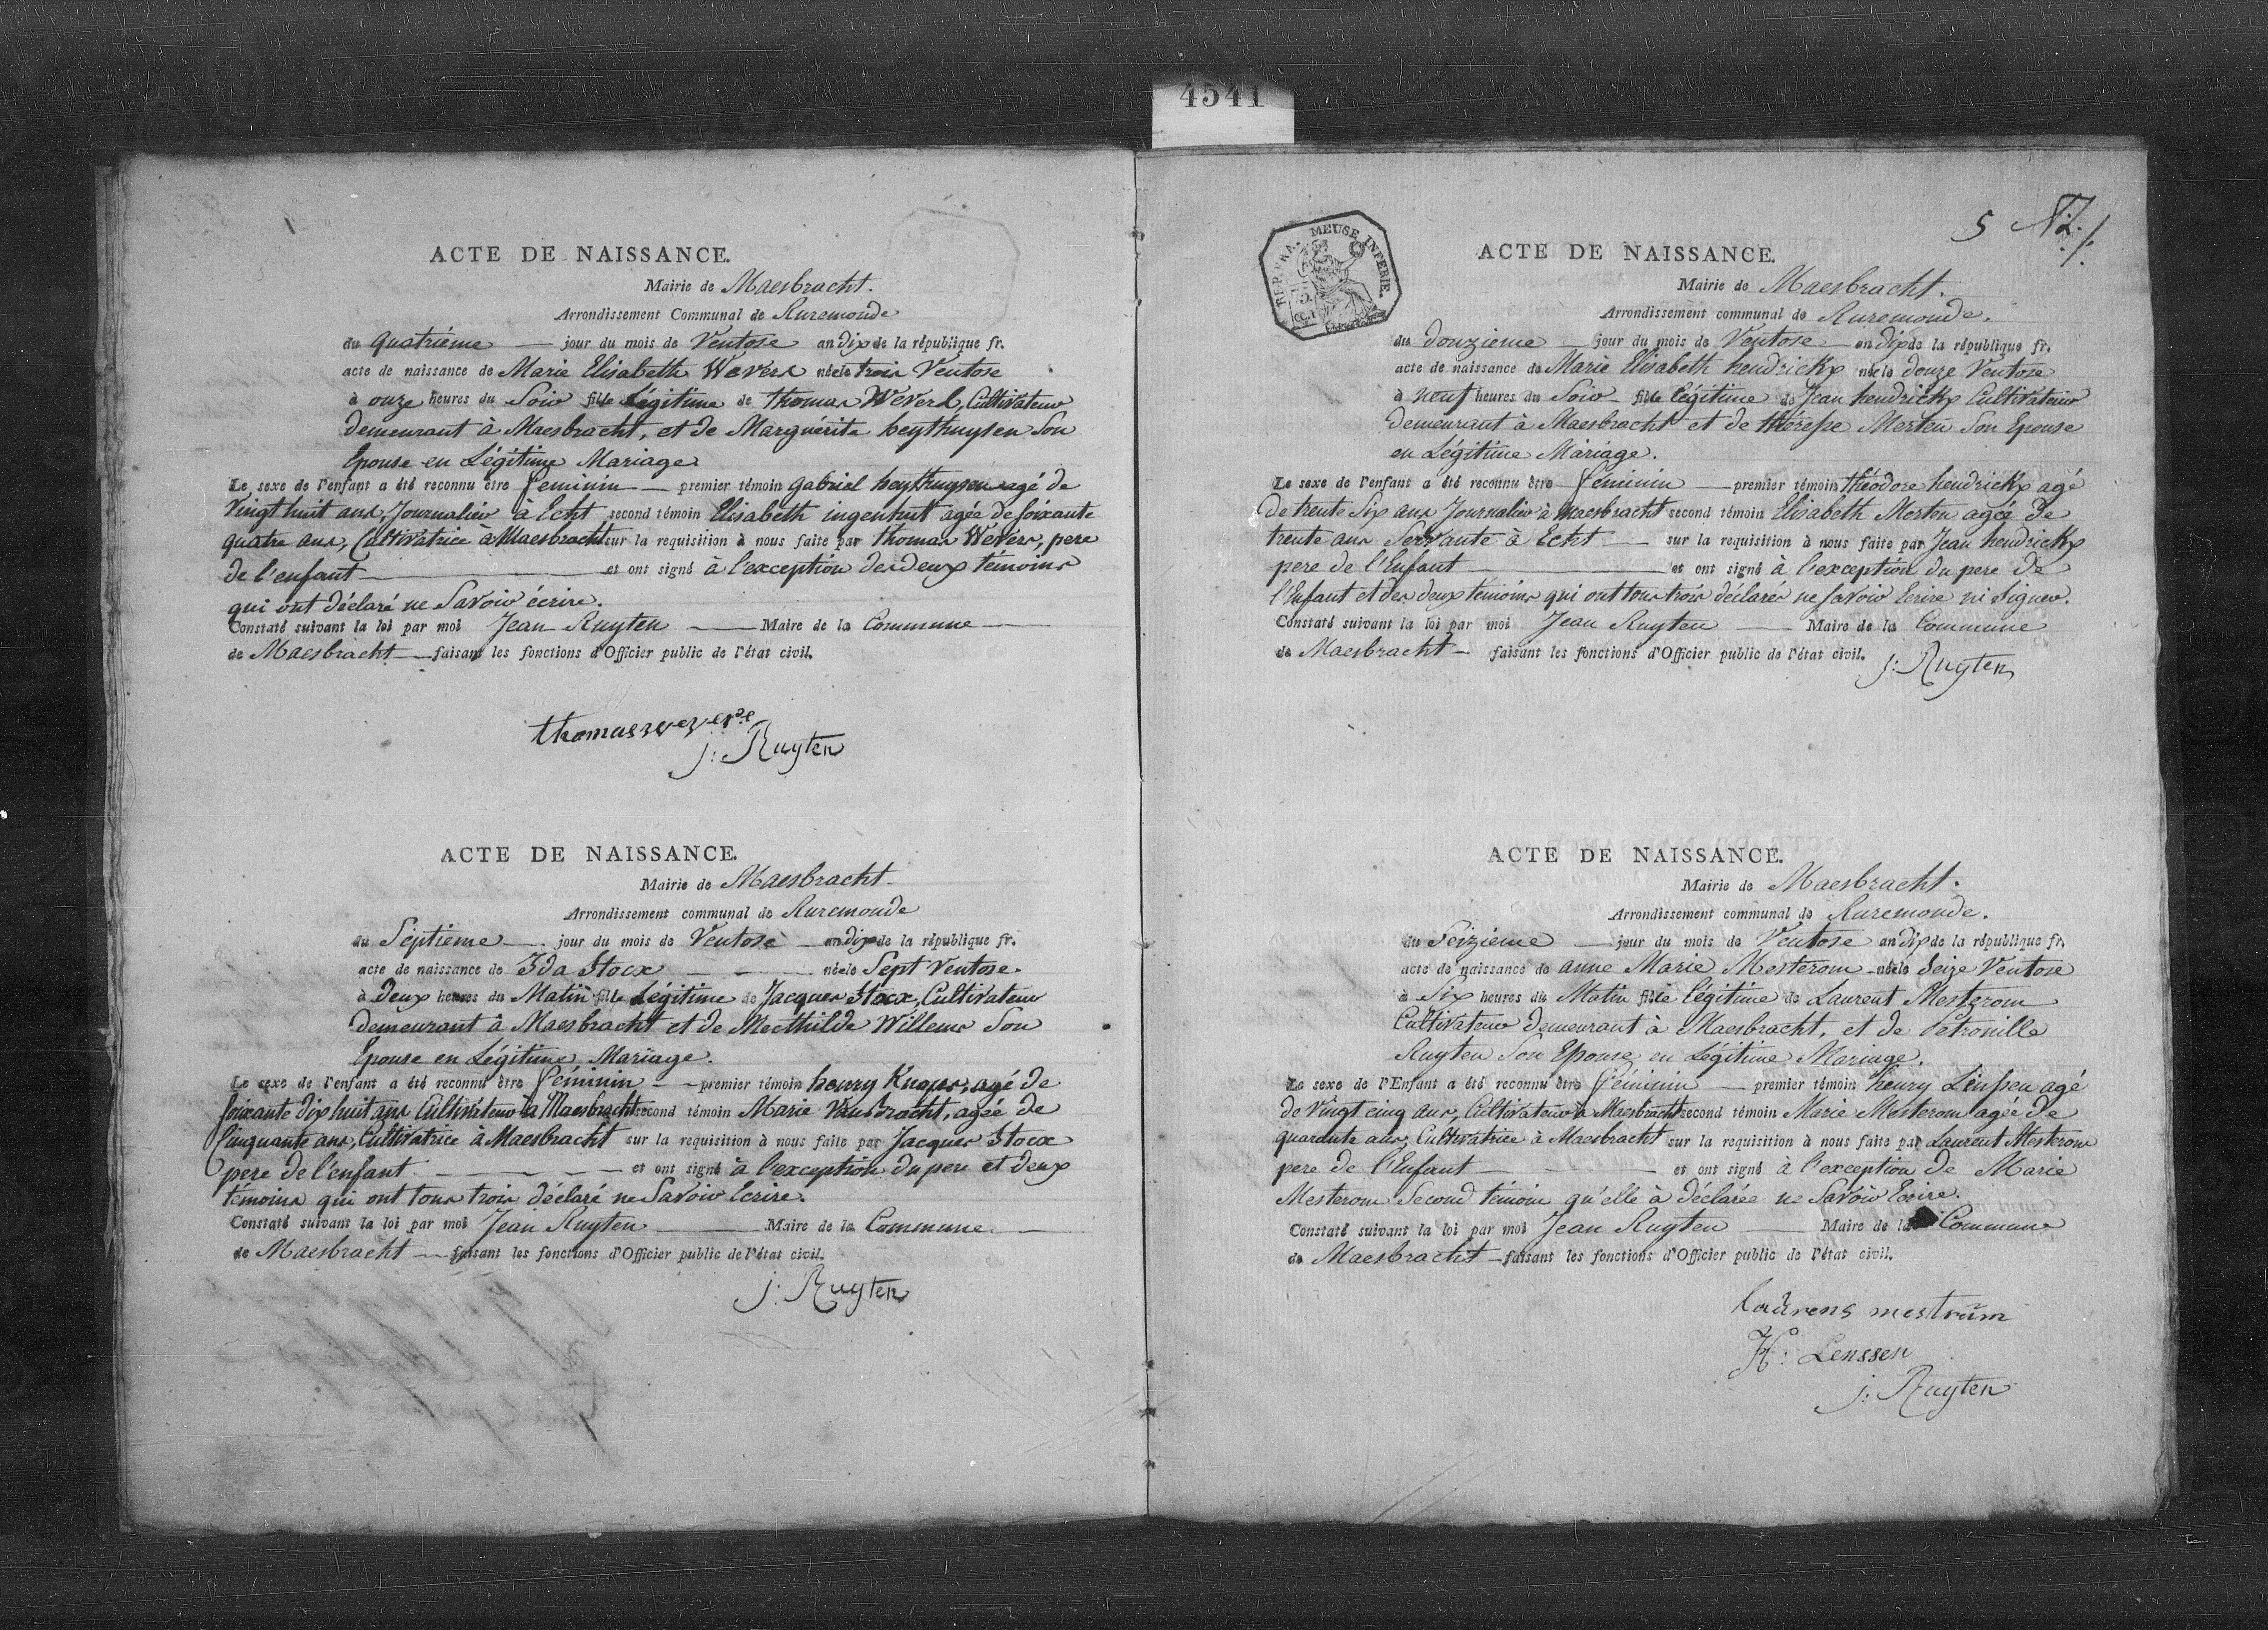 4541
ACTE DE NAISSANCE.
Mairie de Maesbracht.
Arrondissement Communal de Ruremonde
du quatriéme jour du mois de Ventose an dix de la républiique fr.
acte de naissance de Marie Elisabeth Wevers née le trois Ventose
à onze heures du Soir fille Légitime de thomas Wevers, Cultivateur
demeurant à Maesbracht, et de Marguerite heythuysen Son
Epouse en Légitime Mariage
Le sexe de l'enfant a été reconnu être feminin premier témoin gabriel heythuysen agé de
Vingt huit ans, Journalier à Echt second témoin Elisabeth ingenhut agée de soixante
quatre ans, Cultivatrice à Maesbracht sur la requisition à nous faite par thomas Wevers, pere
de l'enfant et ont signé à l'exception des deux témoins
qui ont déclaré ne Savoir écrire.
Constaté suivant la loi par moi Jean Ruyten Maire de la Commune
de Maesbracht faisant les fonctions d'Officier public de l'état civil.
thomas wevers
j: Ruyten
ACTE DE NAISSANCE.
Mairie de Maesbracht
Arrondissement communal de Ruremonde
du Septieme jour du mois de Ventose an dix de la république fr.
acte de naissance de Ida Stocx née le Sept Ventose
à deux heures du Matin fille Légitime de Jacques Stocx, Cultivateur
demeurant à Maesbracht et de Mecthilde Willems Son
Epouse en Légitime Mariage.
Le sexe de l'enfant a été reconnu être féminin premier témoin henry Knops, agé de
soixante dix huit ans Cultivateur à Maesbracht second témoin Marie Vansbracht, agée de
Cinquante ans, Cultivatrice à Maesbracht sur la requisition à nous faite par Jacques Stocx
pere de l'enfant et ont signé à l'exception du pere et deux
témoins qui ont tous trois déclaré ne Savoir Ecrire.
Constaté suivant la loi par moi Jean Ruyten Maire de la Commune
de Maesbracht faisant les fonctions d'Officier public de l'état civil.
j: Ruyten
5
REP. FRA. MEUSE INFERIE.
ACTE DE NAISSANCE.
Mairie de Maesbracht.
Arrondissement communal de Ruremonde.
du douzieme jour du mois de Ventose an dix de la république fr.
acte de naissance de Marie Elisabeth hendrickx née le douze Ventose
à neuf heures du Soir fille légitime de Jean hendrickx Cultivateur
demeurant à Maesbracht et de thérese Merten Son Epouse
en Légitime Mariage.
Le sexe de l'enfant a été reconnu être féminin premier témoin théodore hendrickx agé
de trente Six ans Journalier à maesbracht second témoin Elisabeth Merten agée de
trente ans Servante à Echt sur la requisition à nous faite par Jean hendrickx
pere de l'Enfant et ont signé à l'exception du pere de
l'Enfant et des deux témoins qui ont tous trois déclarés ne savoir Ecrire ni Signer.
Constaté suivant la loi par moi Jean Ruyten Maire de la Commune
de Maesbracht faisant les fonctions d'Officier public de l'état civil.
j: Ruyten
ACTE DE NAISSANCE.
Mairie de Maesbracht.
Arrondissement communal de Ruremonde.
du Seizieme jour du mois de Ventose an dix de la république fr.
acte de naissance de anne Marie Mesterom née le Seize Ventose
à Six heures du Matin fille légitime de Laurent Mesterom
Cultivateur demeurant à Maesbracht, et de Petronille
Ruyten Son Epouse en Légitime Mariage.
Le sexe de l'Enfant a été reconnu être féminin premier témoin henry Linssen agé
de Vingt cinq ans, Cultivateur à Maesbracht second témoin Marie Mesterom agée de
quarante ans, Cultivatrice à Maesbracht sur la requisition à nous faite par Laurent Mesterom
pere de l'Enfant et ont signé à l'exception de Marie
Mesterom Second témoin qu'elle à déclarée ne Savoir Ecrire.
Constaté suivant la loi par moi Jean Ruyten Maire de la Commune
de Maesbracht faisant les fonctions d'Officier public de l'état civil.
laurens mestrum
H: Lenssen
j: Ruyten